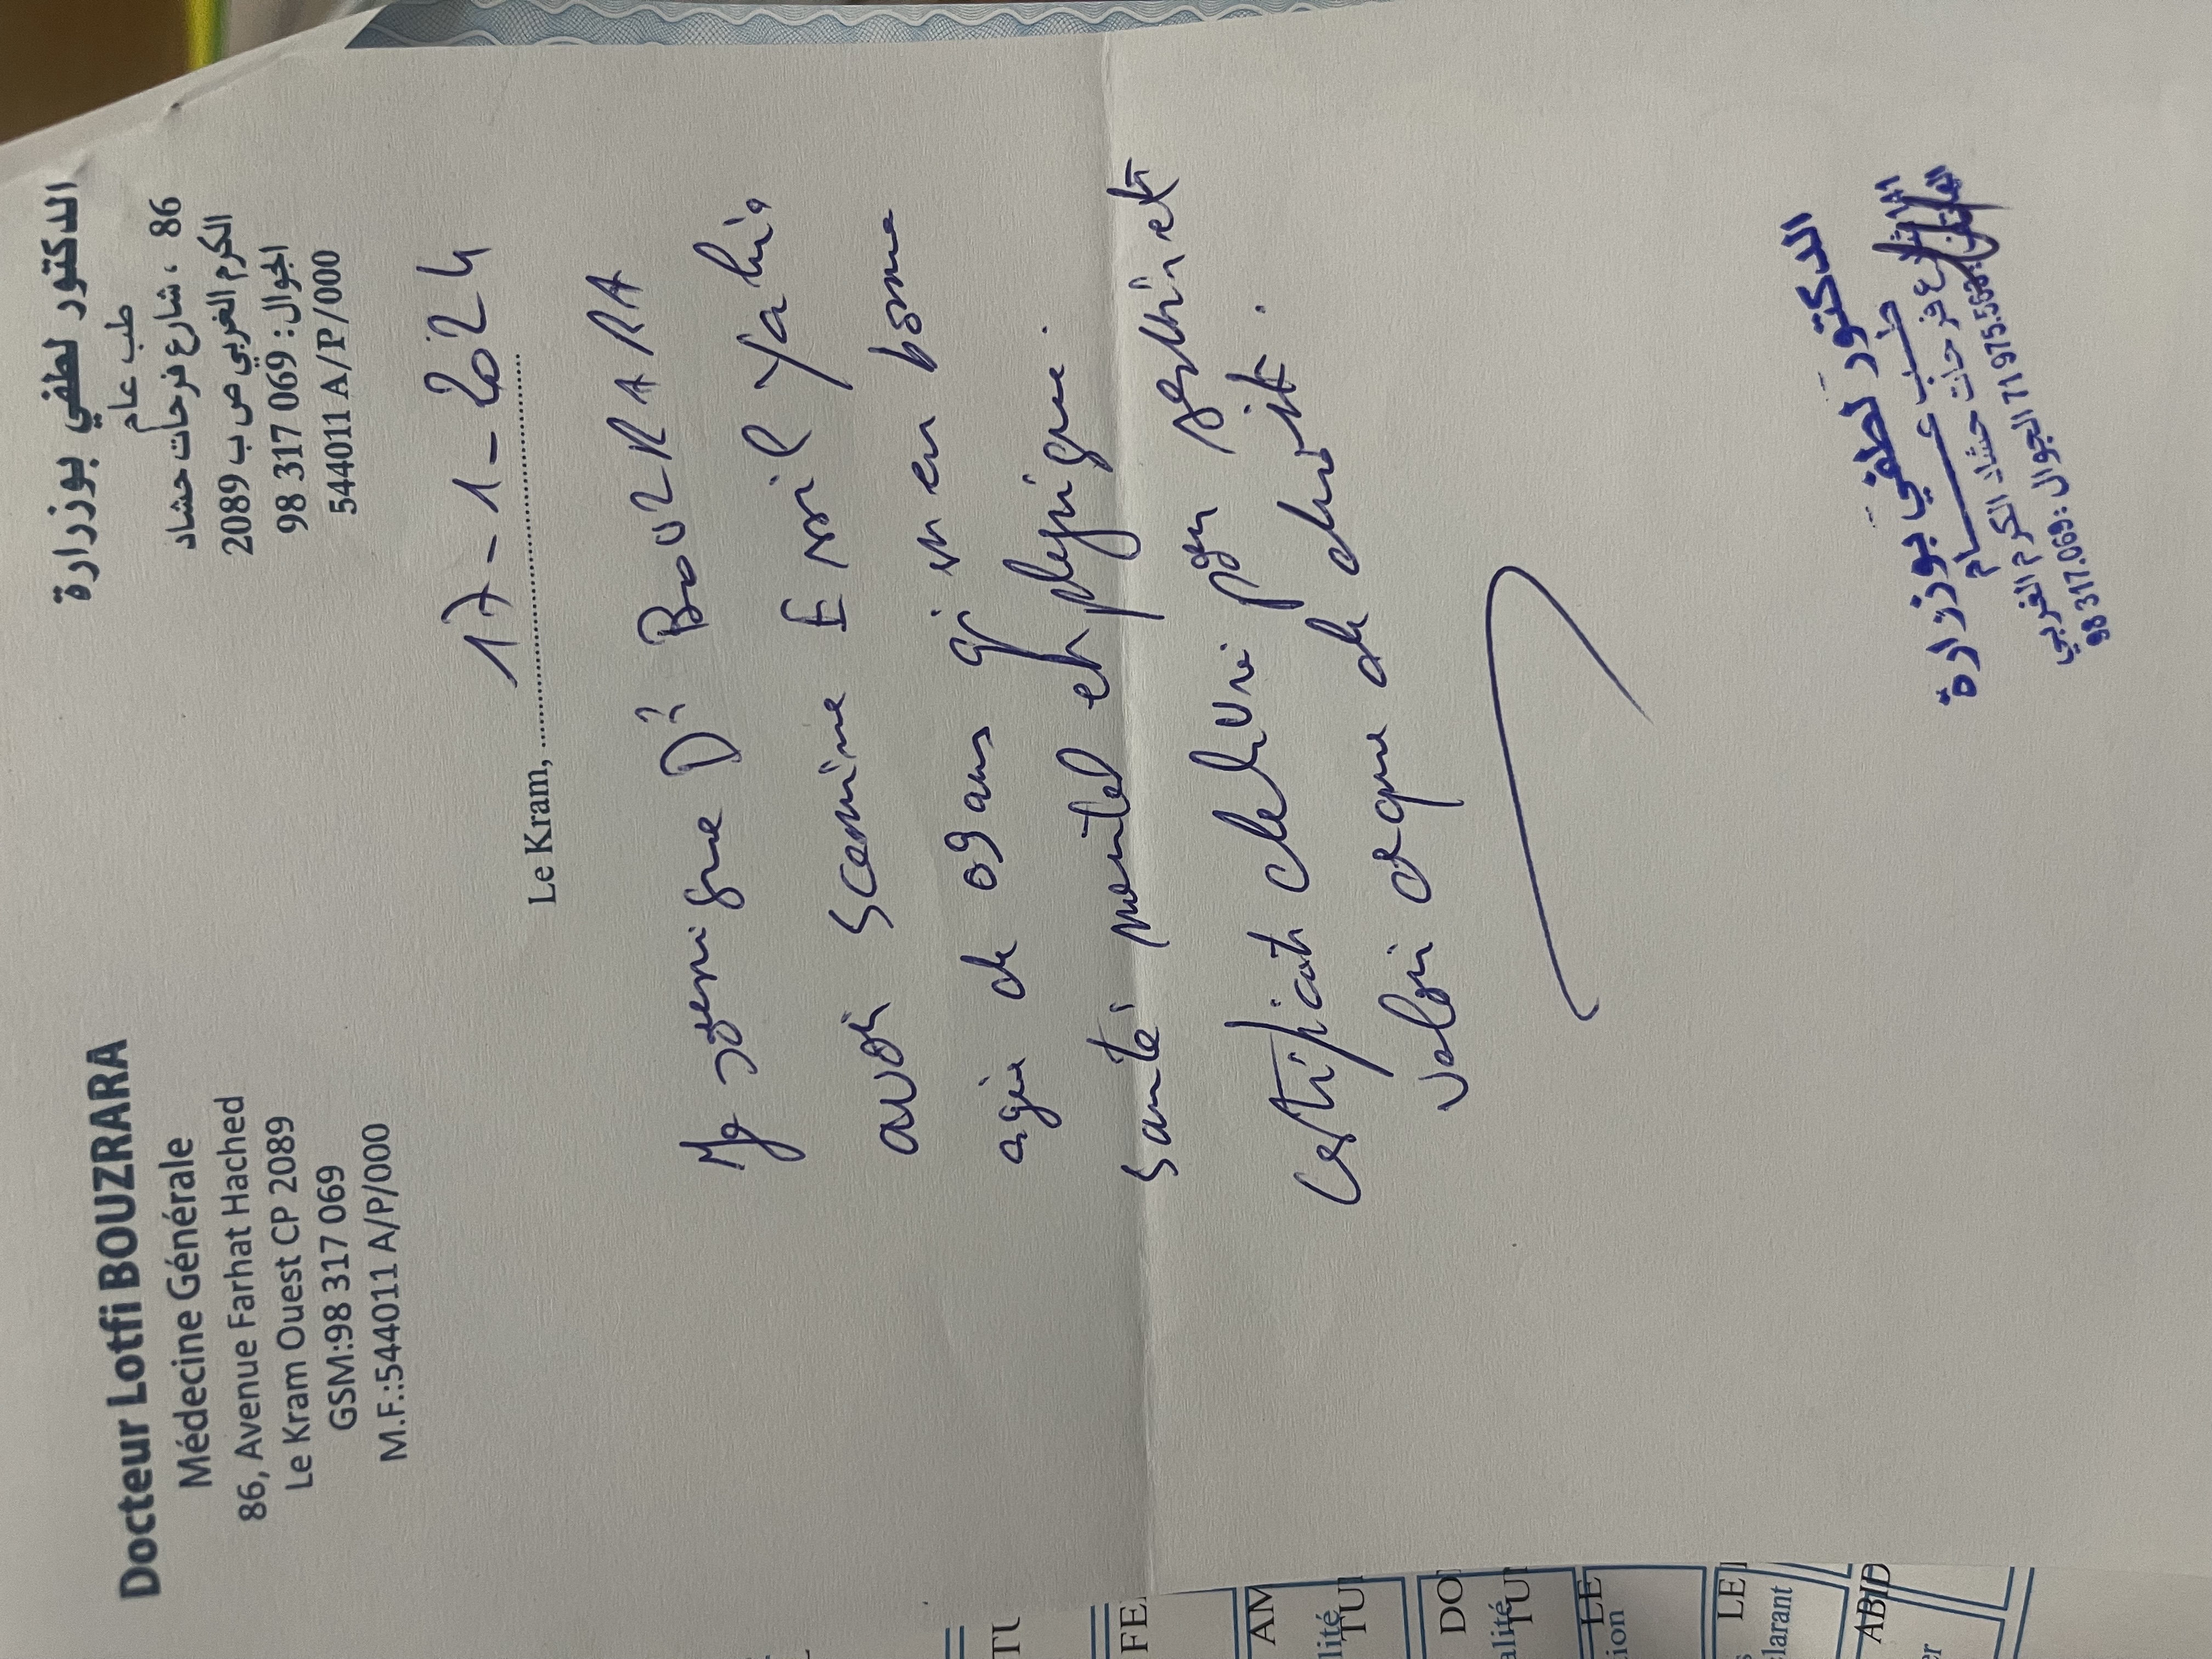 Docteur Lotfi BOUZRARA
Médecine Générale
86, Avenue Farhat Hached
Le Kram Ouest CP 2089
GSM:98 317 069
M.F.:544011 A/P/000
الدكتور لطفي بوزرارة
طب عام
86 ، شارع فرحات حشاد
الكرم الغربي ص ب 2089
الجوال : 069 317 98
544011 A/P/000
Le Kram, 17-1-2024
soussigné Dr BOUZRARA
avoir examiné Yahia
agée de 09 ans qui est en bonne
santé mentel et physique.
Certificat delivré pour
valoir ce que de droit.
الدكتور لطفي بوزرارة
طب عام
شارع فرحات حشاد الكرم الغربي
الجوال : 98 317.069
FE
AM
lité
TU
DO
alité
TU
LE
ion
LE
clarant
ABID
er